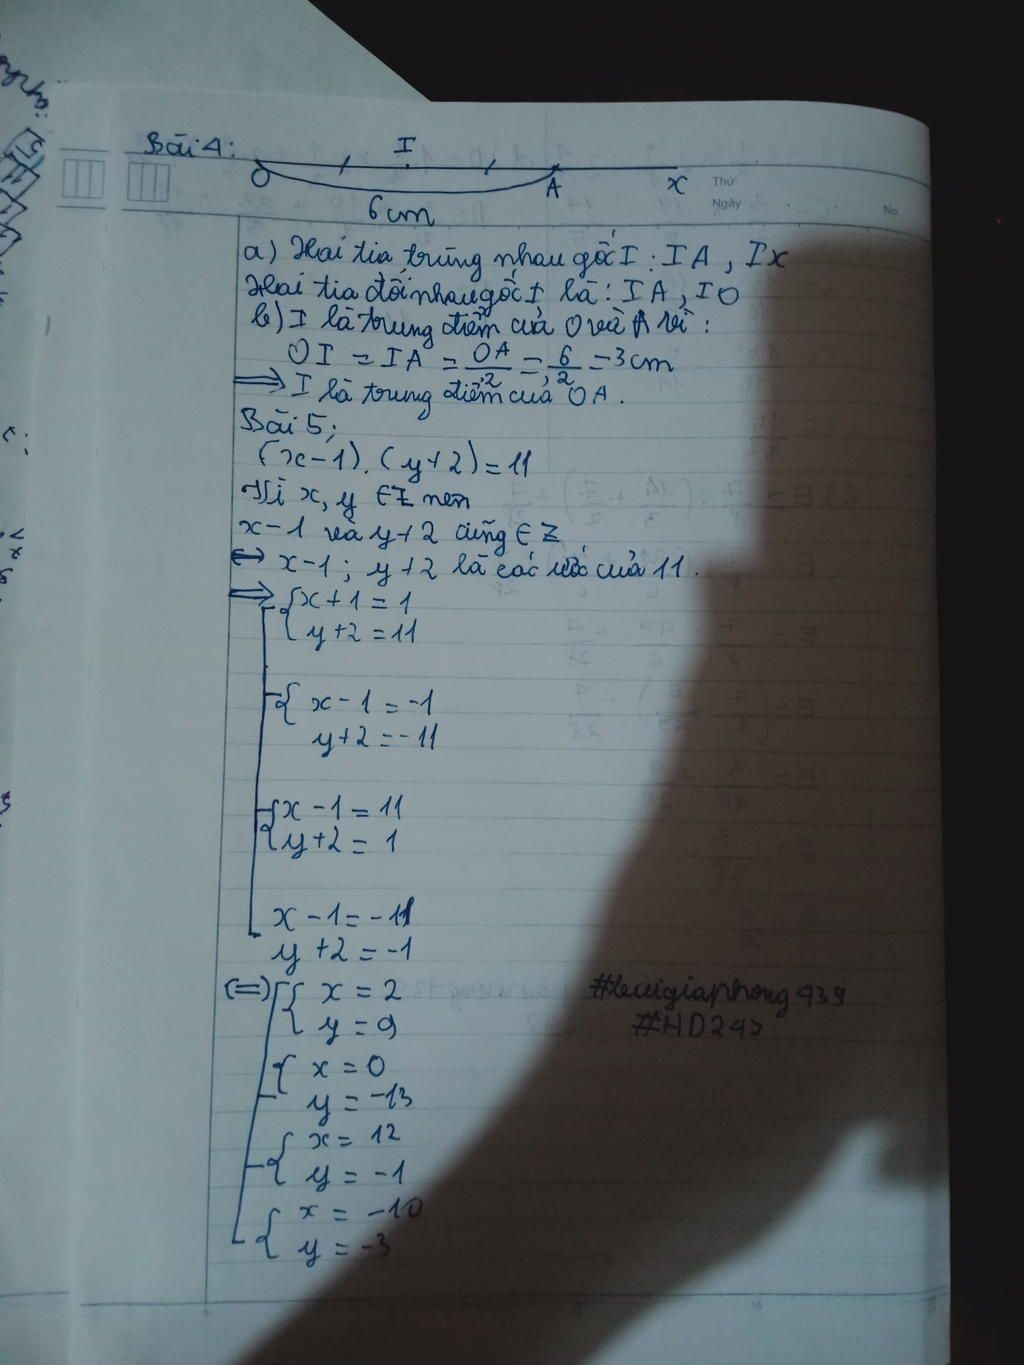 Bài 4:
I
O
A
x
6cm
Thứ
Ngày
No.
a) Hai tia trùng nhau gốc I: IA, Ix
Hai tia đối nhau gốc I là: IA, IO
b) I là trung điểm của O và A vì:
OI = IA = OA/2 = 6/2 = 3cm
=> I là trung điểm của OA.
Bài 5;
(x-1).(y+2)=11
Vì x, y ∈ Z nên
x-1 và y+2 cũng ∈ Z
<=> x-1; y+2 là các ước của 11.
=> { x+1 = 1
y+2 = 11
{ x-1 = -1
y+2 = -11
{ x-1 = 11
y+2 = 1
x-1 = -11
y+2 = -1
(=) { x = 2
y = 9
{ x = 0
y = -13
{ x = 12
y = -1
{ x = -10
y = -3
#HD247